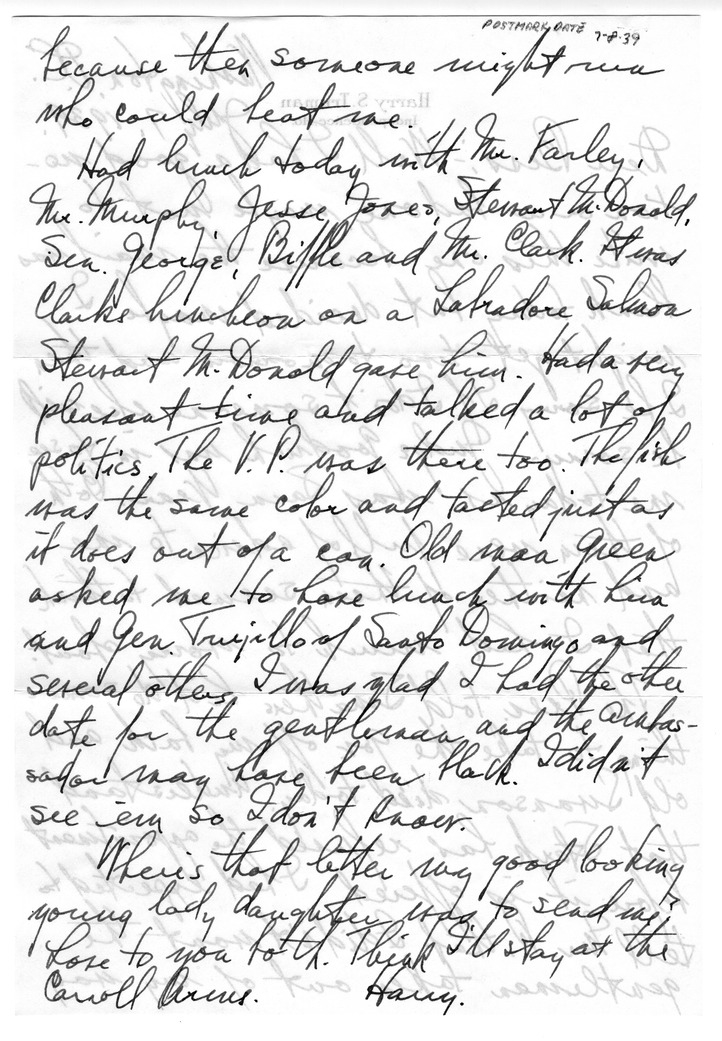 POSTMARK DATE 7-8-39
because then someone might run
who could beat me.
Had lunch today with Mr. Farley,
Mr. Murphy, Jesse Jones, Stewart McDonald,
Sen. George, Biffle and Mr. Clark. It was
Clark's luncheon on a Labradore Salmon
Stewart McDonald gave him. Had a very
pleasant time and talked a lot of
politics. The V.P. was there too. The fish
was the same color and tasted just as
it does out of a can. Old man Green
asked me to have lunch with him
and Gen. Trujillo of Santo Domingo and
several others. I was glad I had the other
date for the gentleman and the Ambas-
sador may have been black. I didn't
see 'em so I don't know.
Where's that letter my good looking
young lady daughter was to send me?
Love to you both. Think I'll stay at the
Carroll Arms. Harry.